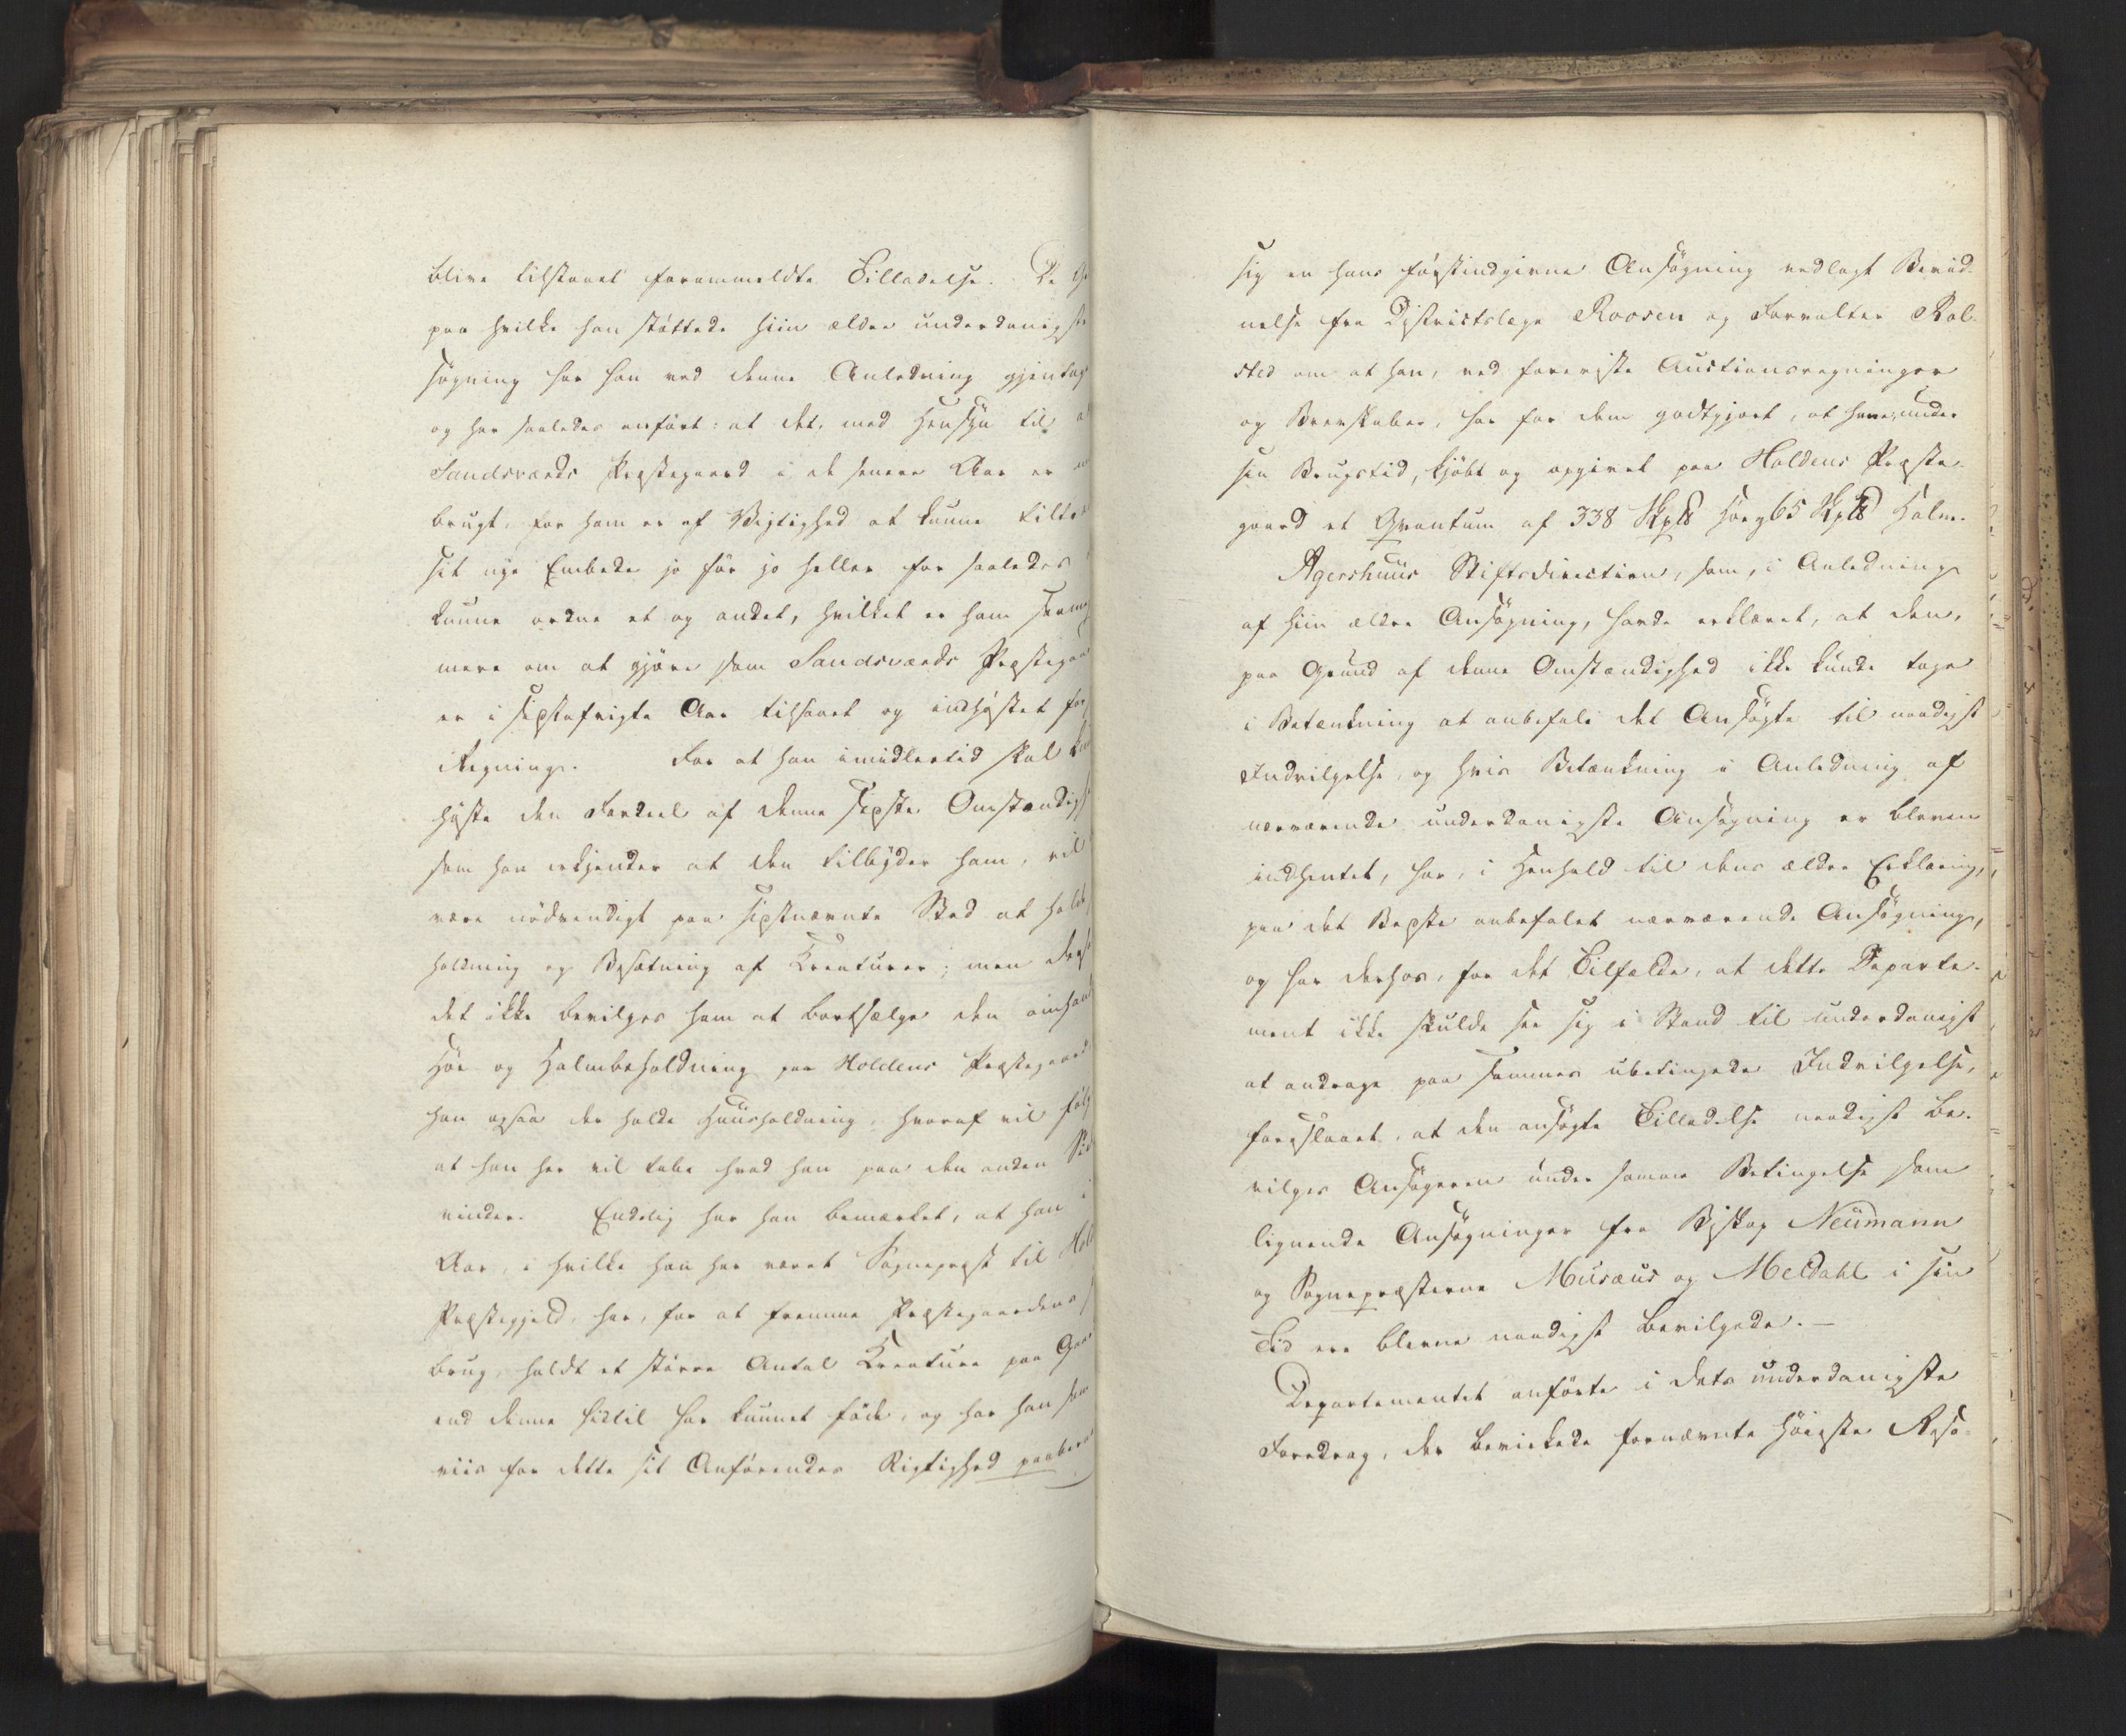 blive tilstaaet forommeldte Tilladelse. De
paa hvilke han støttede hiin ældre underdanigste
søgning har han ved denne Anledning gjentag
og har saaledes anført: at det, med Hensyn til
Sandsværds Præstegaard i de senere Aar er
brugt, for ham er af Vigtighed at kunne tiltr
sit nye Embede jo før jo heller for saaledes
kunne ordne et og andet, hvilket er ham saame
mere om at gjøre som Sandsværds Præstegaa
er i sidstafvigte Aar tilsaaet og indhøstet for
Regning. For at han imidlertid skal
høste den Fordeel af denne sidste Omstændigh
som han erkjender at den tilbyder ham, vil
være nødvendigt paa sidstnævnte Sted at holde
holdning og Besætning af Kreaturer; men ders
det ikke bevilges ham at bortsælge den omhand
Høe og Halmbeholdning paa Holdens Præstegaard
han ogsaa der holde Huusholdning, hvoraf vil følg
at han her vil tabe hvad han paa den anden Sid
vinder. Endelig har han bemærket, at han i
Aar, i hvilke han har været Sognepræst til Hold
Præstegjeld, har, for at fremme Præstegaardens
brug, holdt et større Antal Kreature paa Gaar
end denne hidtil har kunnet føde, og har han som
viis for dette sit Anførendes Rigtighed paabero
sig en hans førstindgivne Ansøgning vedlagt Bevid-
nelse fra Districtslæge Roosen og Forvalter Rol-
sted om at han, ved foreviste Auctionsregninger
og Brevskaber, har for dem godtgjort, at have, under
sin Brugstid, kjøbt og opgivet paa Holdens Præste-
gaard et Qvantum af 338 Skp℔ Høe og 65 Skp℔ Halm.
Agershuus Stiftsdirection, som, i Anledning
af hiin ældre Ansøgning, havde erklæret, at den,
paa Grund af denne Omstændighed ikke kunde tage
i Betænkning at anbefale det Ansøgte til naadigst
Indvilgelse, og hvis Betænkning i Anledning af
nærværende underdanigste Ansøgning er bleven
indhentet, har, i Henhold til dens ældre Erklæring,
paa det Bedste anbefalet nærværende Ansøgning,
og har derhos, for det Tilfælde, at dette Departe-
ment ikke skulde see sig i Stand til underdanigst
at andrage paa sammes ubetingede Indvilgelse,
foreslaaet, at den ansøgte Tilladelse naadigst be-
vilges Ansøgeren under samme Betingelse som
lignende Ansøgninger fra Biskop Neumann
og Sognepræsterne Musæus og Meldahl i sin
Tid ere blevne naadigst bevilgede. —
Departementet anførte i dets underdanigste
Foredrag, der bevirkede fornævnte Høieste Reso-